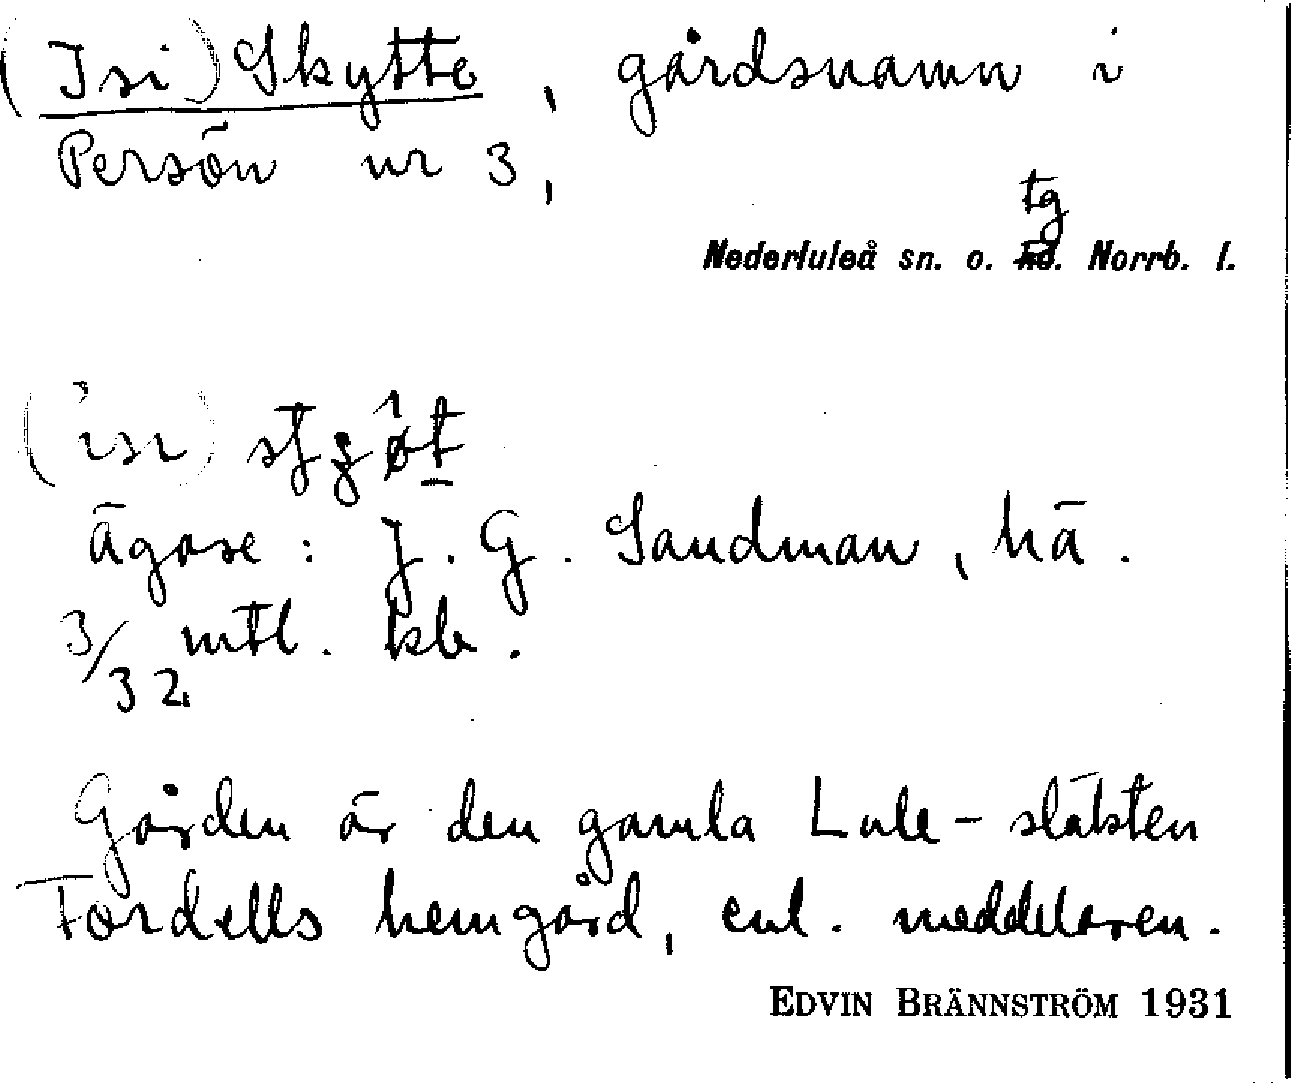 (Isi) Skytte, gårdsnamn i
Persön nr 3,
tg
Nederluleå sn. o. hd. Norrb. l.
ägare: J. G. Sandman, hä.
3/32 mtl. kb.
Gården är den gamla Lule-släkten
Fordells hemgård, enl. meddelaren.
EDVIN BRÄNNSTRÖM 1931